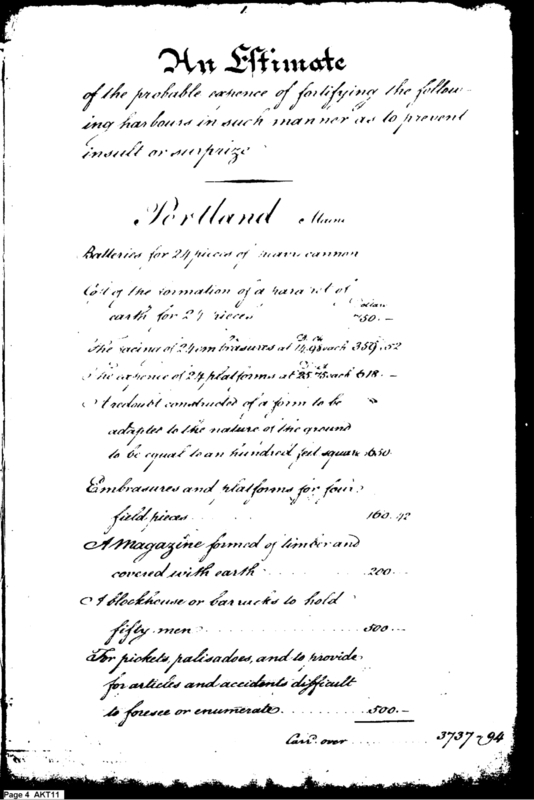 1.
An Estimate
of the probable expence of fortifying the follow-
ing harbours in such manner as to prevent
insult or surprize
Portland Maine
Batteries for 24 pieces of heavy cannon
Cost of the formation of a parapet of
Dollars
earth for 24 pieces 750.—
The facing of 24 embrasures at 14.98 each 359.52
The expence of 24 platforms at 25 75 each 618.—
A redoubt constructed of a form to be
adapted to the nature of the ground
to be equal to an hundred feet square 650
Embrasures and platforms for four
field pieces 160.42
A Magazine formed of timber and
covered with earth 200.
A blockhouse or barracks to hold
fifty men 500
For pickets, palisadoes, and to provide
for articles and accidents difficult
to foresee or enumerate 500.—
Carr. over 3737-94
Page 4 AKT11